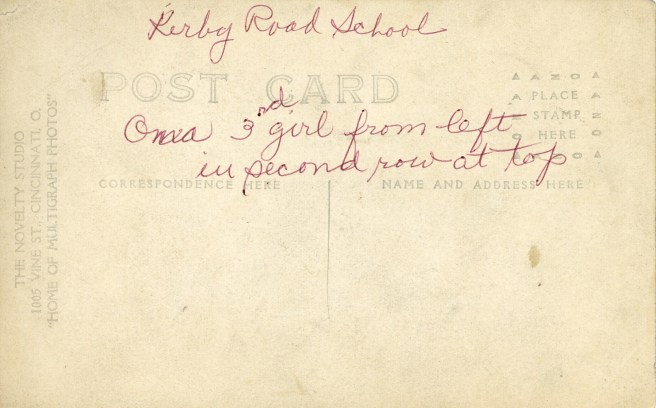 Kerby Road School
POST CARD
Oma 3rd girl from left
in second row at top
PLACE
STAMP
HERE
CORRESPONDENCE HERE
NAME AND ADDRESS HERE
THE NOVELTY STUDIO
1005 VINE ST., CINCINNATI, O.
"HOME OF MULTIGRAPH PHOTOS"